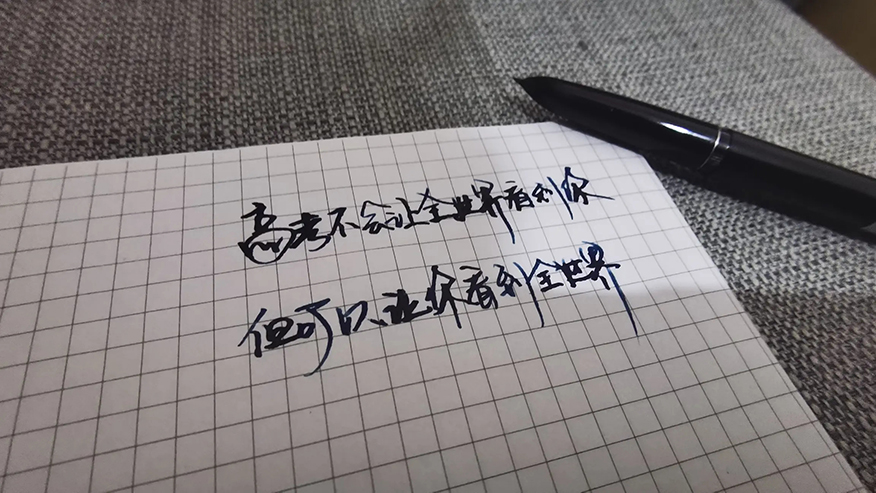 高考不会让全世界看到你
但可以让你看到全世界